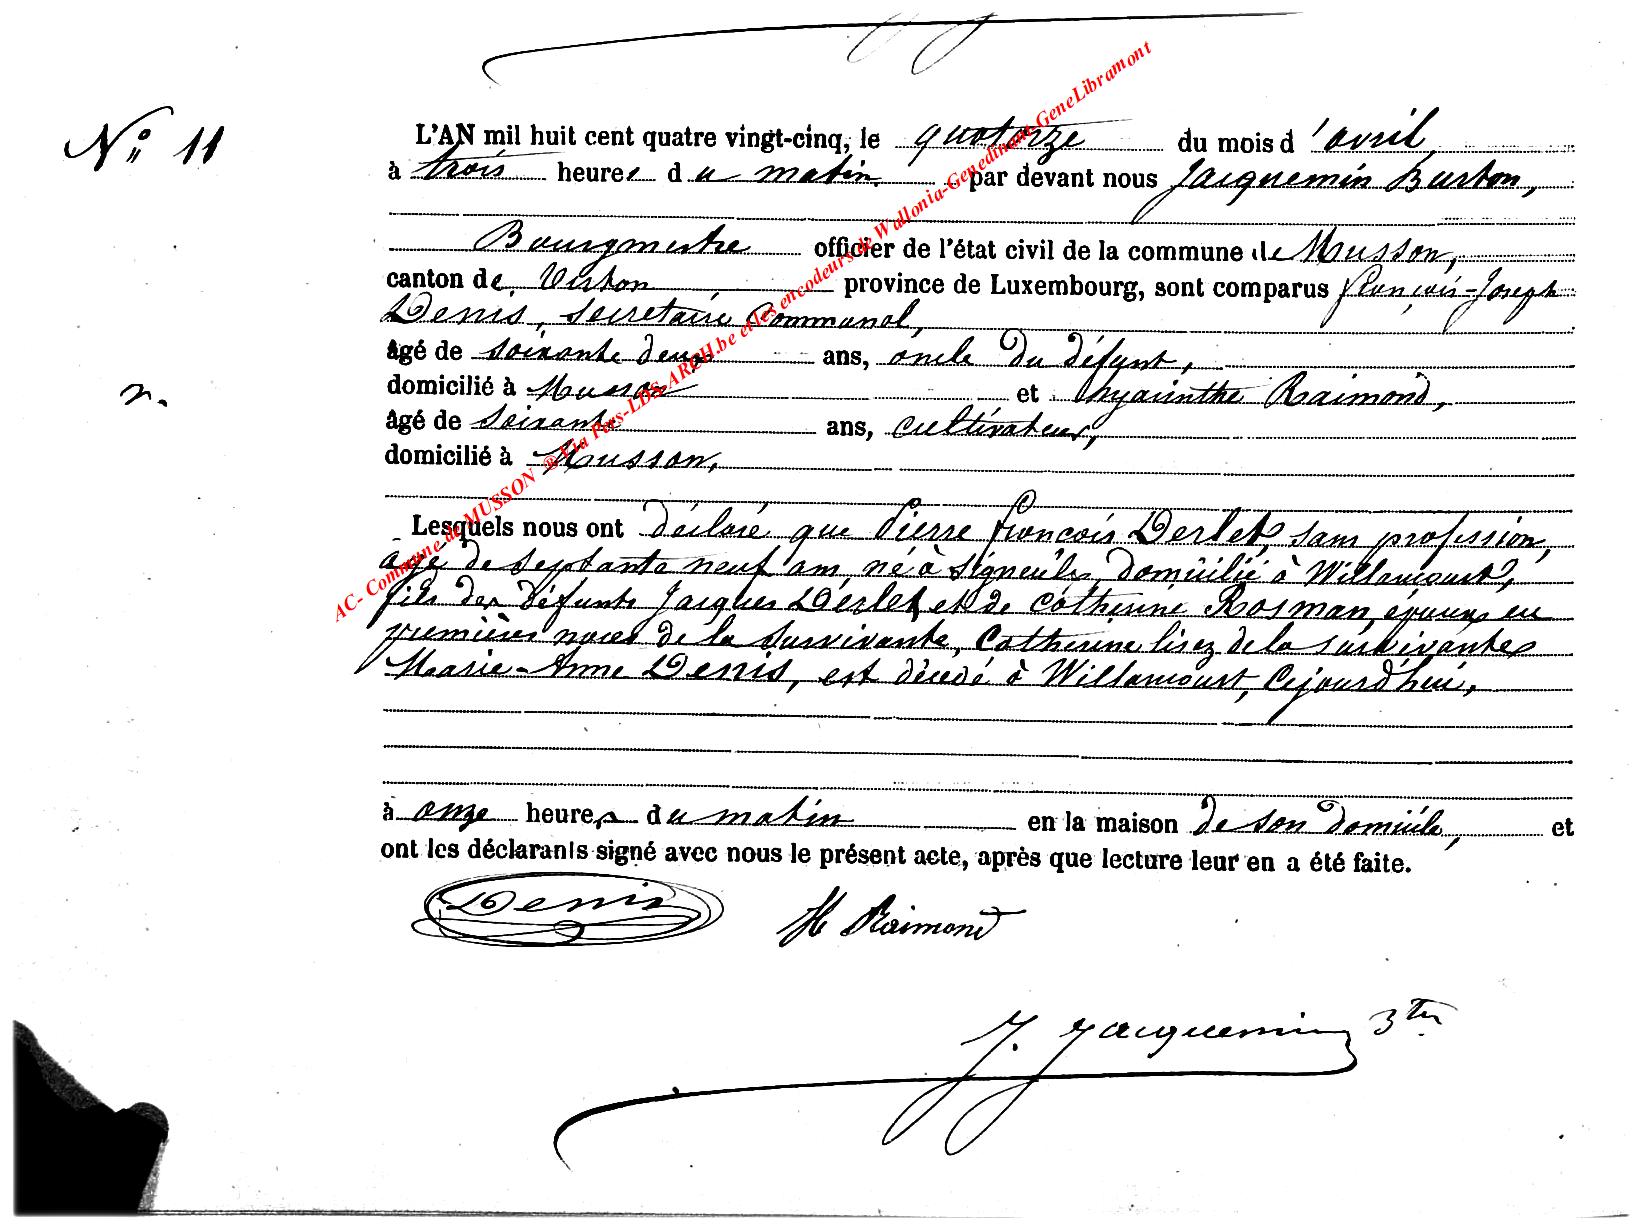 N° 11
L'AN mil huit cent quatre vingt-cinq, le quatorze du mois d'avril,
à trois heures du matin. par devant nous Jacquemin Burton,
Bourgmestre officier de l'état civil de la commune de Musson,
canton de Virton province de Luxembourg, sont comparus françois-Joseph
Denis, secrétaire Communal,
âgé de soixante deux ans, oncle du défunt,
domicilié à Musson et hyacinthe Raimond,
âgé de soixante ans, cultivateur,
domicilié à Musson,
Lesquels nous ont déclaré que Pierre françois Derlet, sans profession,
âgé de septante neuf ans, né à Signeulx, domicilié à Willancourt,
fils des défunts Jacques Derlet et de Catherine Rosman, époux en
premières noces de la survivante, Catherine lisez de la survivantes
Marie-Anne Denis, est décédé à Willancourt, Cejourd'hui,
à onze heures du matin en la maison de son domicile, et
ont les déclarants signé avec nous le présent acte, après que lecture leur en a été faite.
Denis H Raimond
J. Jacquemin Btn
AC- Commune de MUSSON ® Via Pers-LDS-ARCH.be et les encodeurs de Wallonia-Genedinant-GeneLibramont